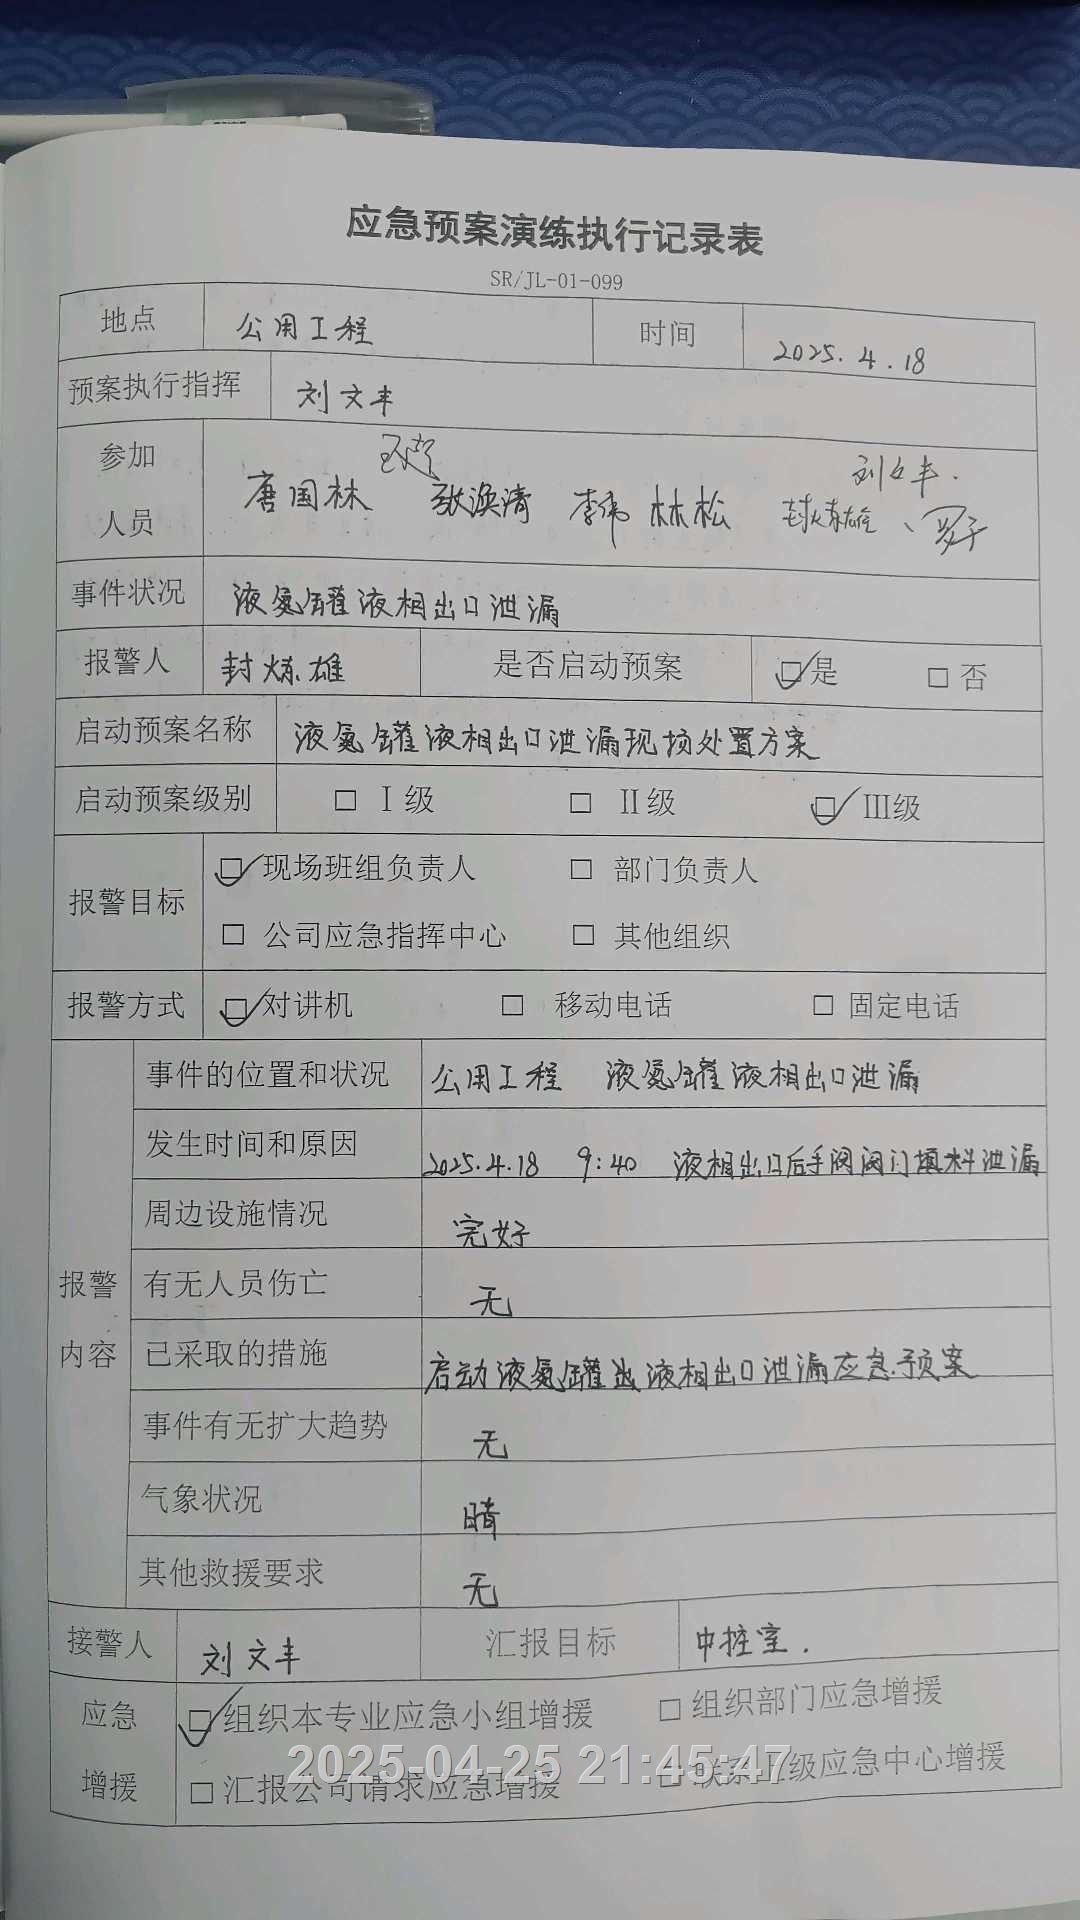 应急预案演练执行记录表
SR/JL-01-099
地点 公用工程 时间 2025.4.18
预案执行指挥 刘文丰
刘文丰.
参加人员 唐国林 张涣清 李伟 林松 封炼雄、
事件状况 液氨罐液相出口泄漏
报警人 封炼雄 是否启动预案 ☑是 □否
启动预案名称 液氨罐液相出口泄漏现场处置方案
启动预案级别 □ Ⅰ级 □ Ⅱ级 ☑ Ⅲ级
报警目标 ☑现场班组负责人 □ 部门负责人
□ 公司应急指挥中心 □ 其他组织
报警方式 ☑对讲机 □ 移动电话 □ 固定电话
报警内容
事件的位置和状况 公用工程 液氨罐液相出口泄漏
发生时间和原因 2025.4.18 9:40 液相出口后手阀阀门填料泄漏
周边设施情况 完好
有无人员伤亡 无
已采取的措施 启动液氨罐出液相出口泄漏应急预案
事件有无扩大趋势 无
气象状况 晴
其他救援要求 无
接警人 刘文丰 汇报目标 中控室.
应急增援 ☑组织本专业应急小组增援 □组织部门应急增援
□汇报公司请求应急增援 □联系上级应急中心增援
2025-04-25 21:45:47